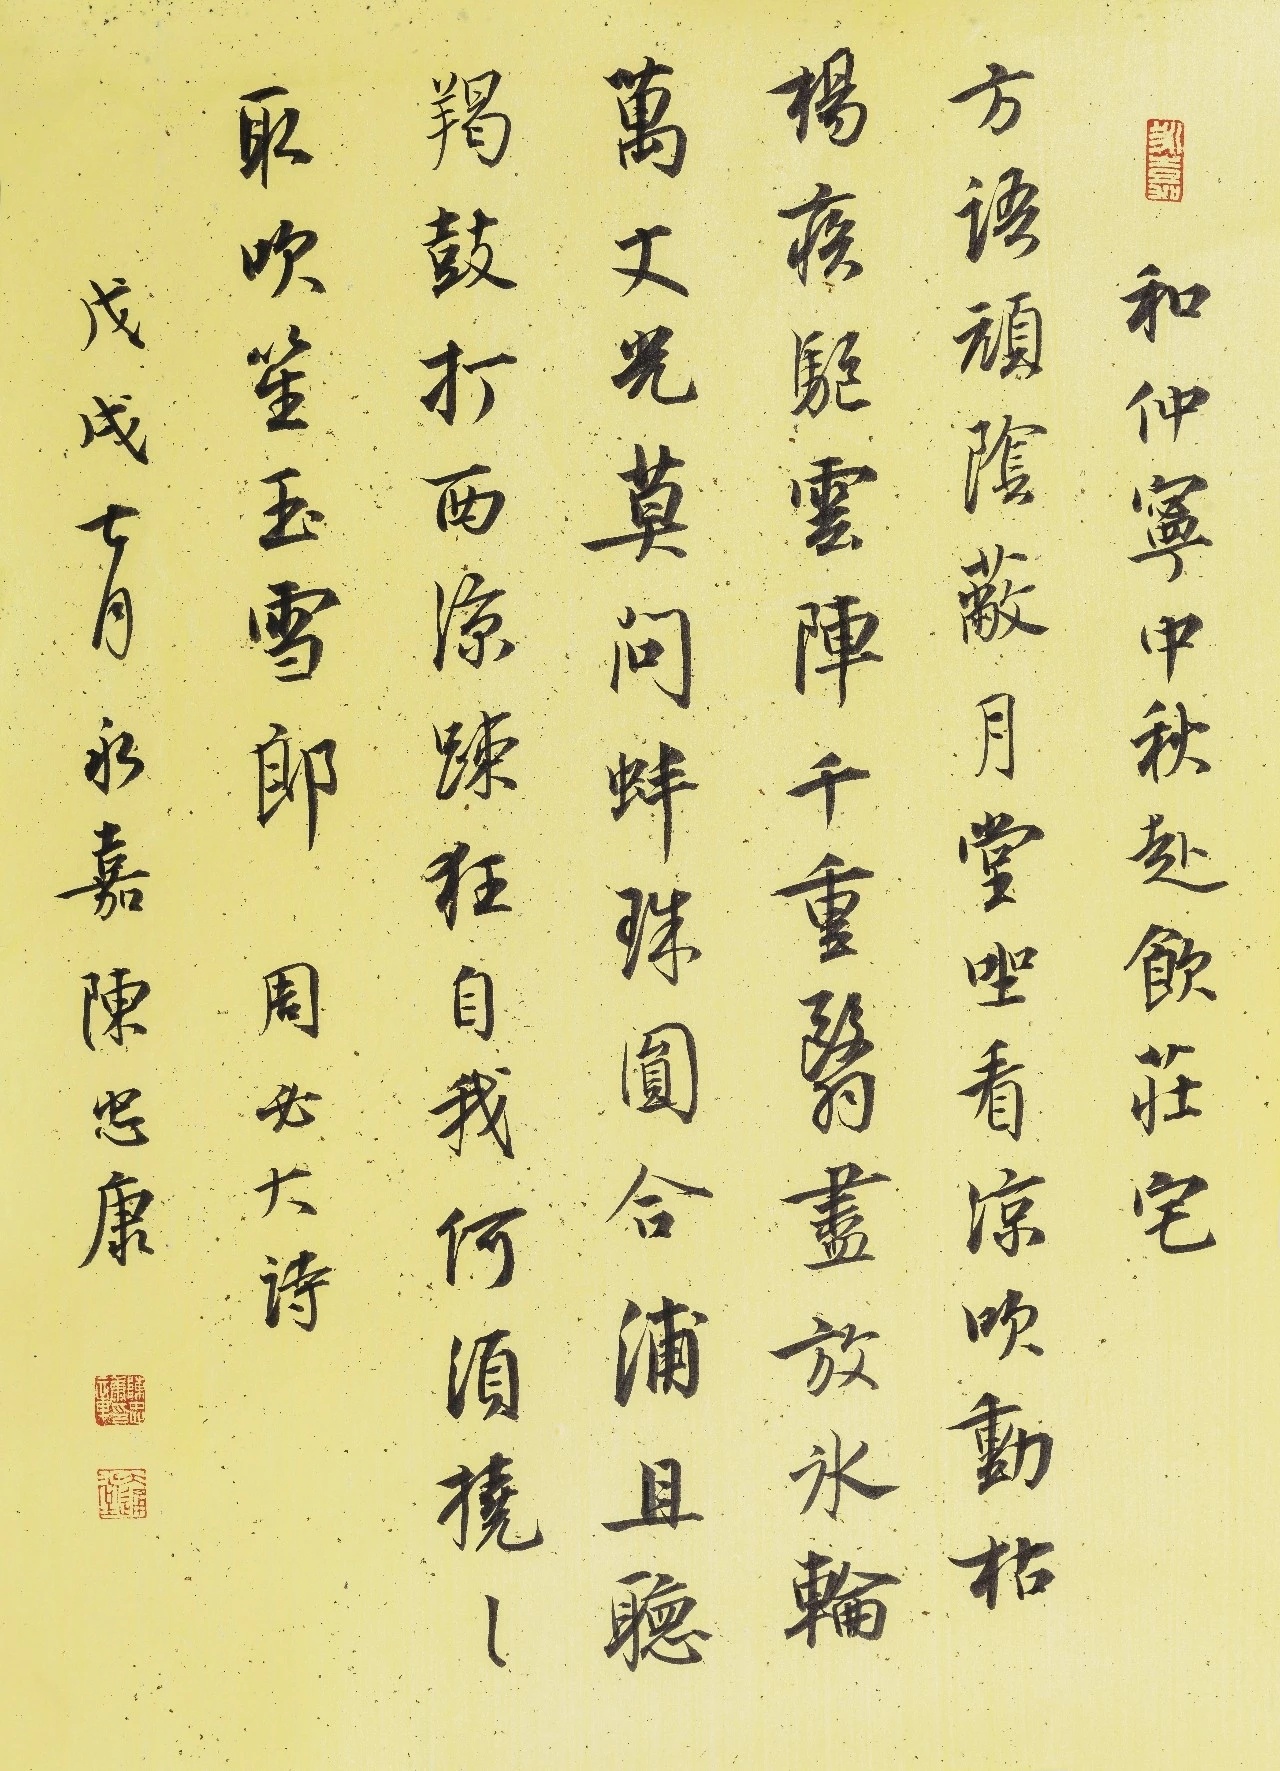 和仲寧中秋赴飲莊宅
方語頑陰蔽月堂坐看涼吹動枯
楊疾驅雲陣千重翳盡放冰輪
萬丈光莫問蚌珠圓合浦且聽
羯鼓打西涼踈狂自我何須撓〻
取吹笙玉雪郎 周必大詩
戊戌七月永嘉陳忠康